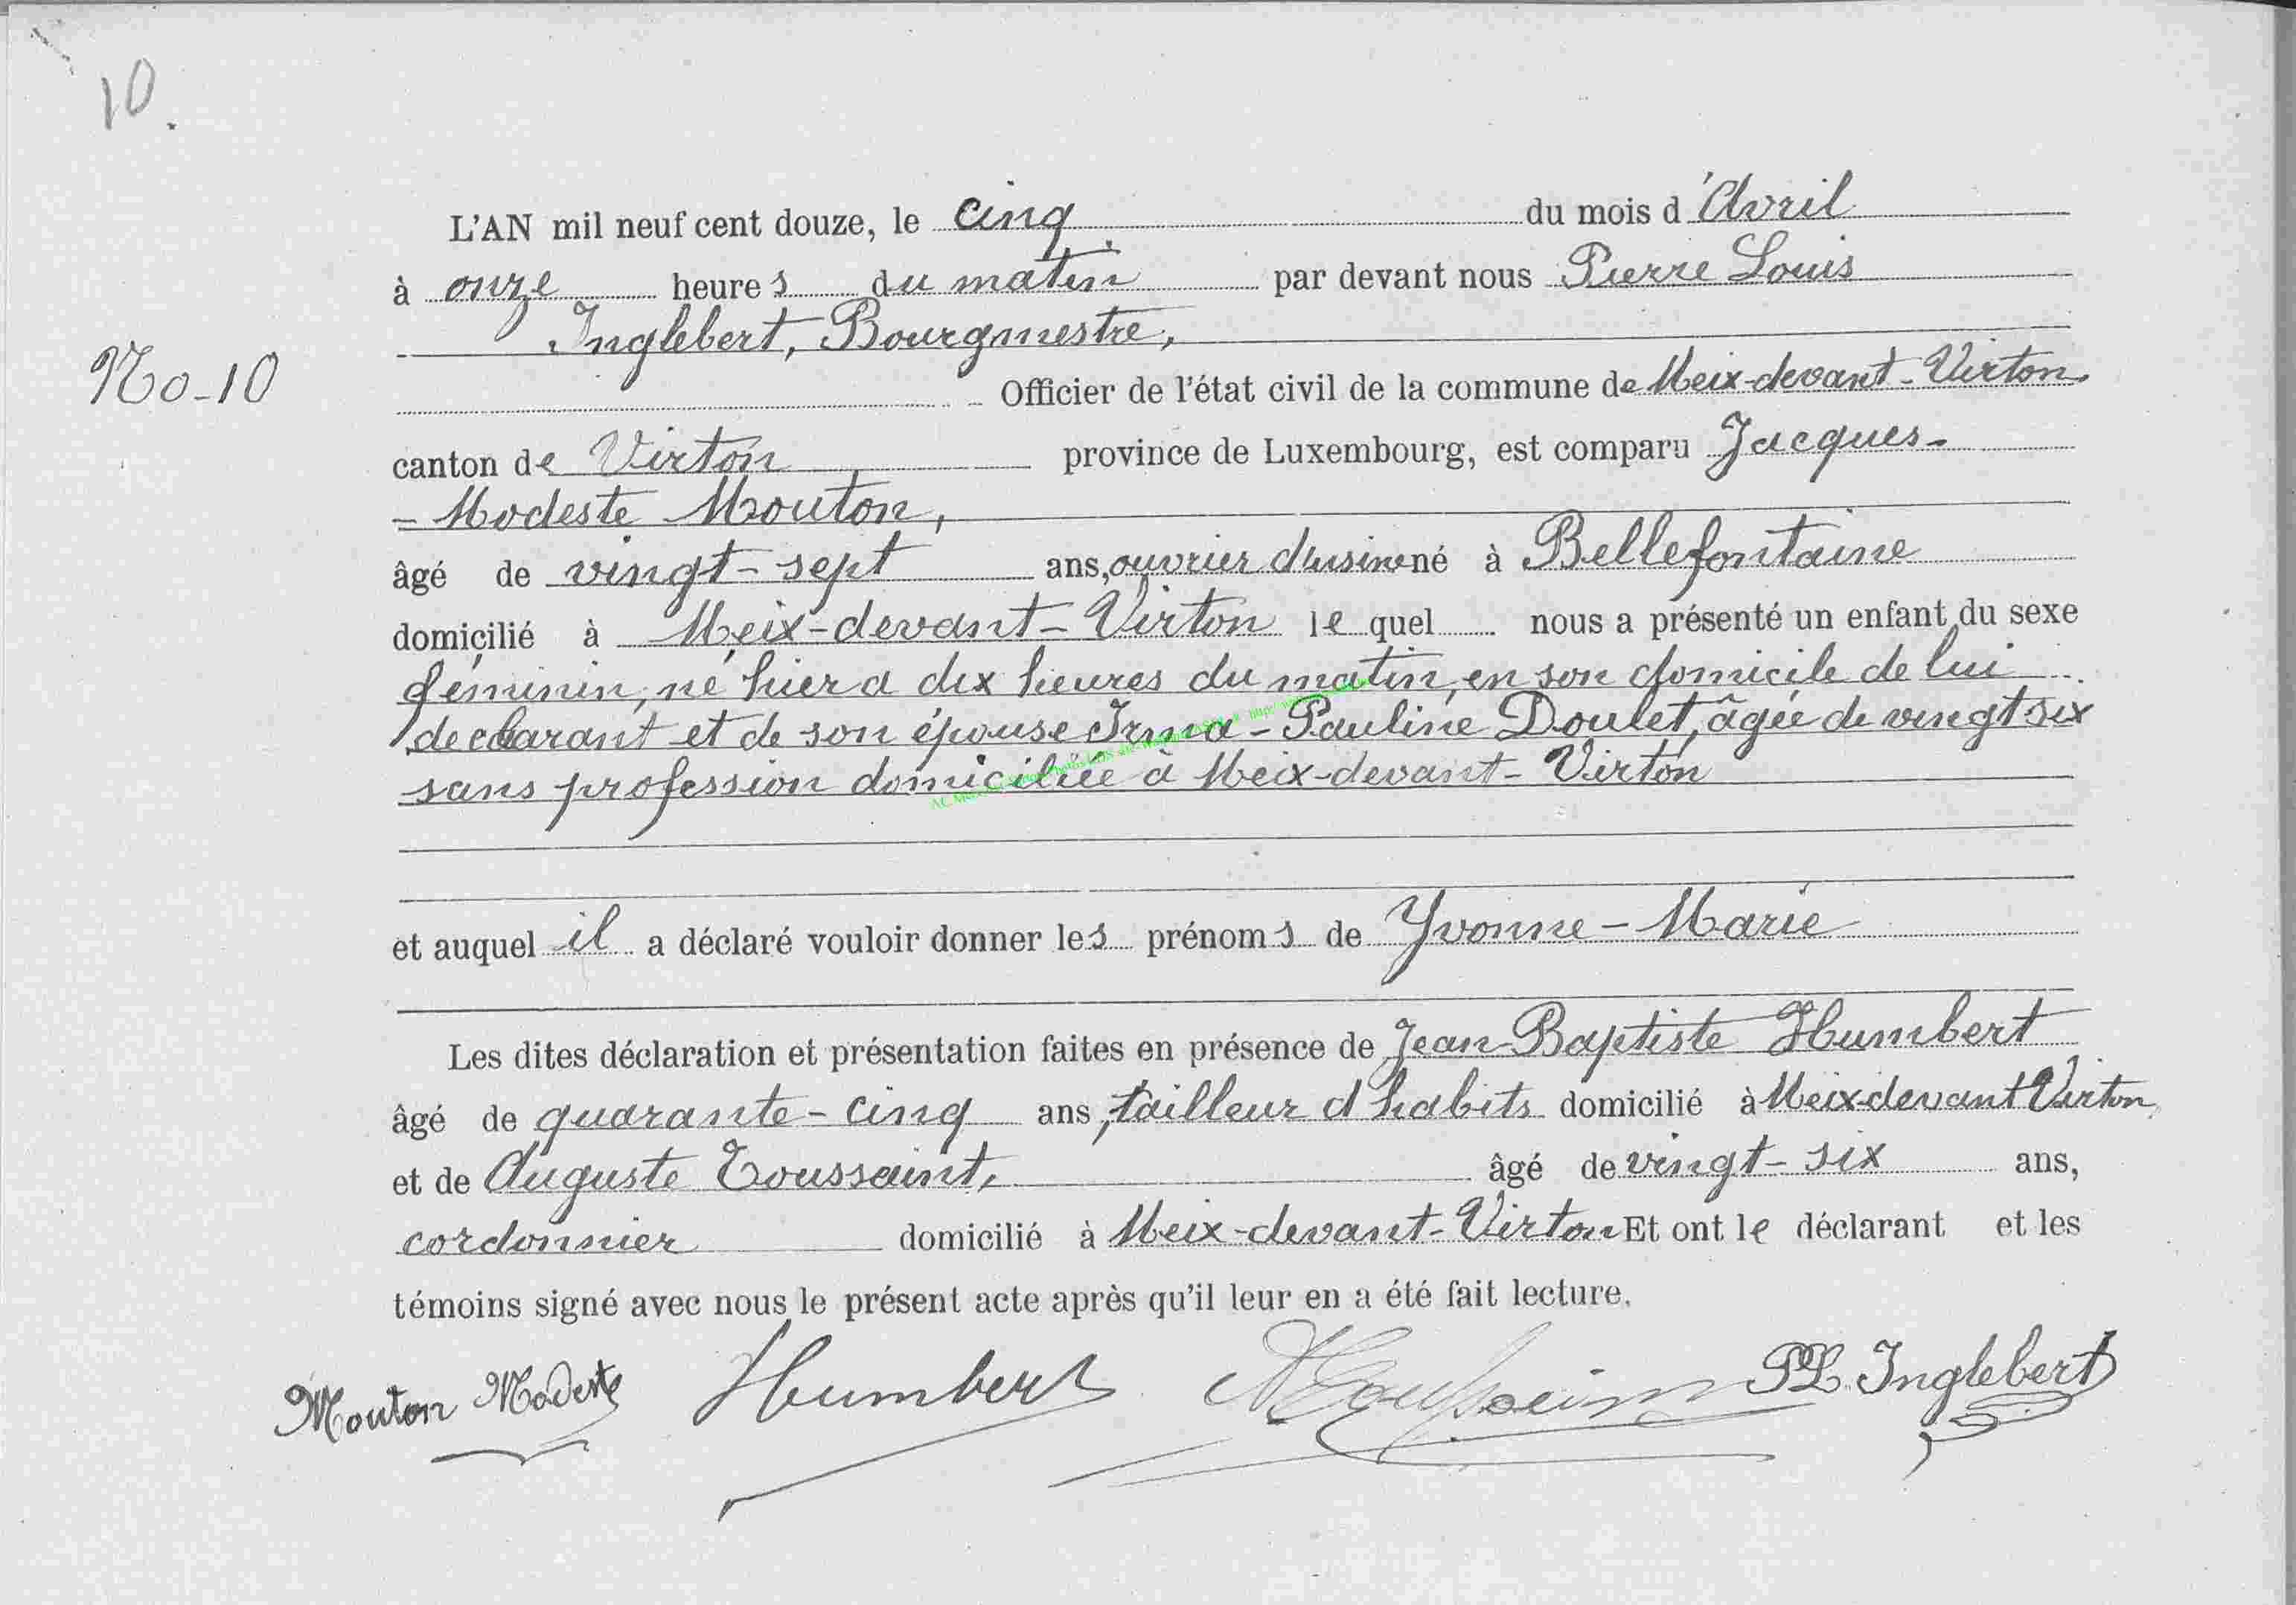 10.
L'AN mil neuf cent douze, le cinq du mois d'Avril
à onze heures du matin par devant nous Pierre Louis
Inglebert, Bourgmestre,
No-10
Officier de l'état civil de la commune de Meix-devant-Virton,
canton de Virton, province de Luxembourg, est comparu Jacques-
-Modeste Mouton,
âgé de vingt-sept ans, ouvrier d'usine né à Bellefontaine
domicilié à Meix-devant-Virton lequel nous a présenté un enfant du sexe
féminin, né hier à dix heures du matin, en son domicile de lui
déclarant et de son épouse Irma-Pauline Doulet, âgée de vingt six
sans profession domiciliée à Meix-devant-Virton
et auquel il a déclaré vouloir donner les prénoms de Yvonne-Marie
Les dites déclaration et présentation faites en présence de Jean-Baptiste Humbert
âgé de quarante-cinq ans, tailleur d'habits domicilié à Meix devant Virton,
et de Auguste Toussaint, âgé de vingt-six ans,
cordonnier domicilié à Meix-devant-Virton Et ont le déclarant et les
témoins signé avec nous le présent acte après qu'il leur en a été fait lecture.
Mouton Modeste Humbert A Toussaint PL. Inglebert